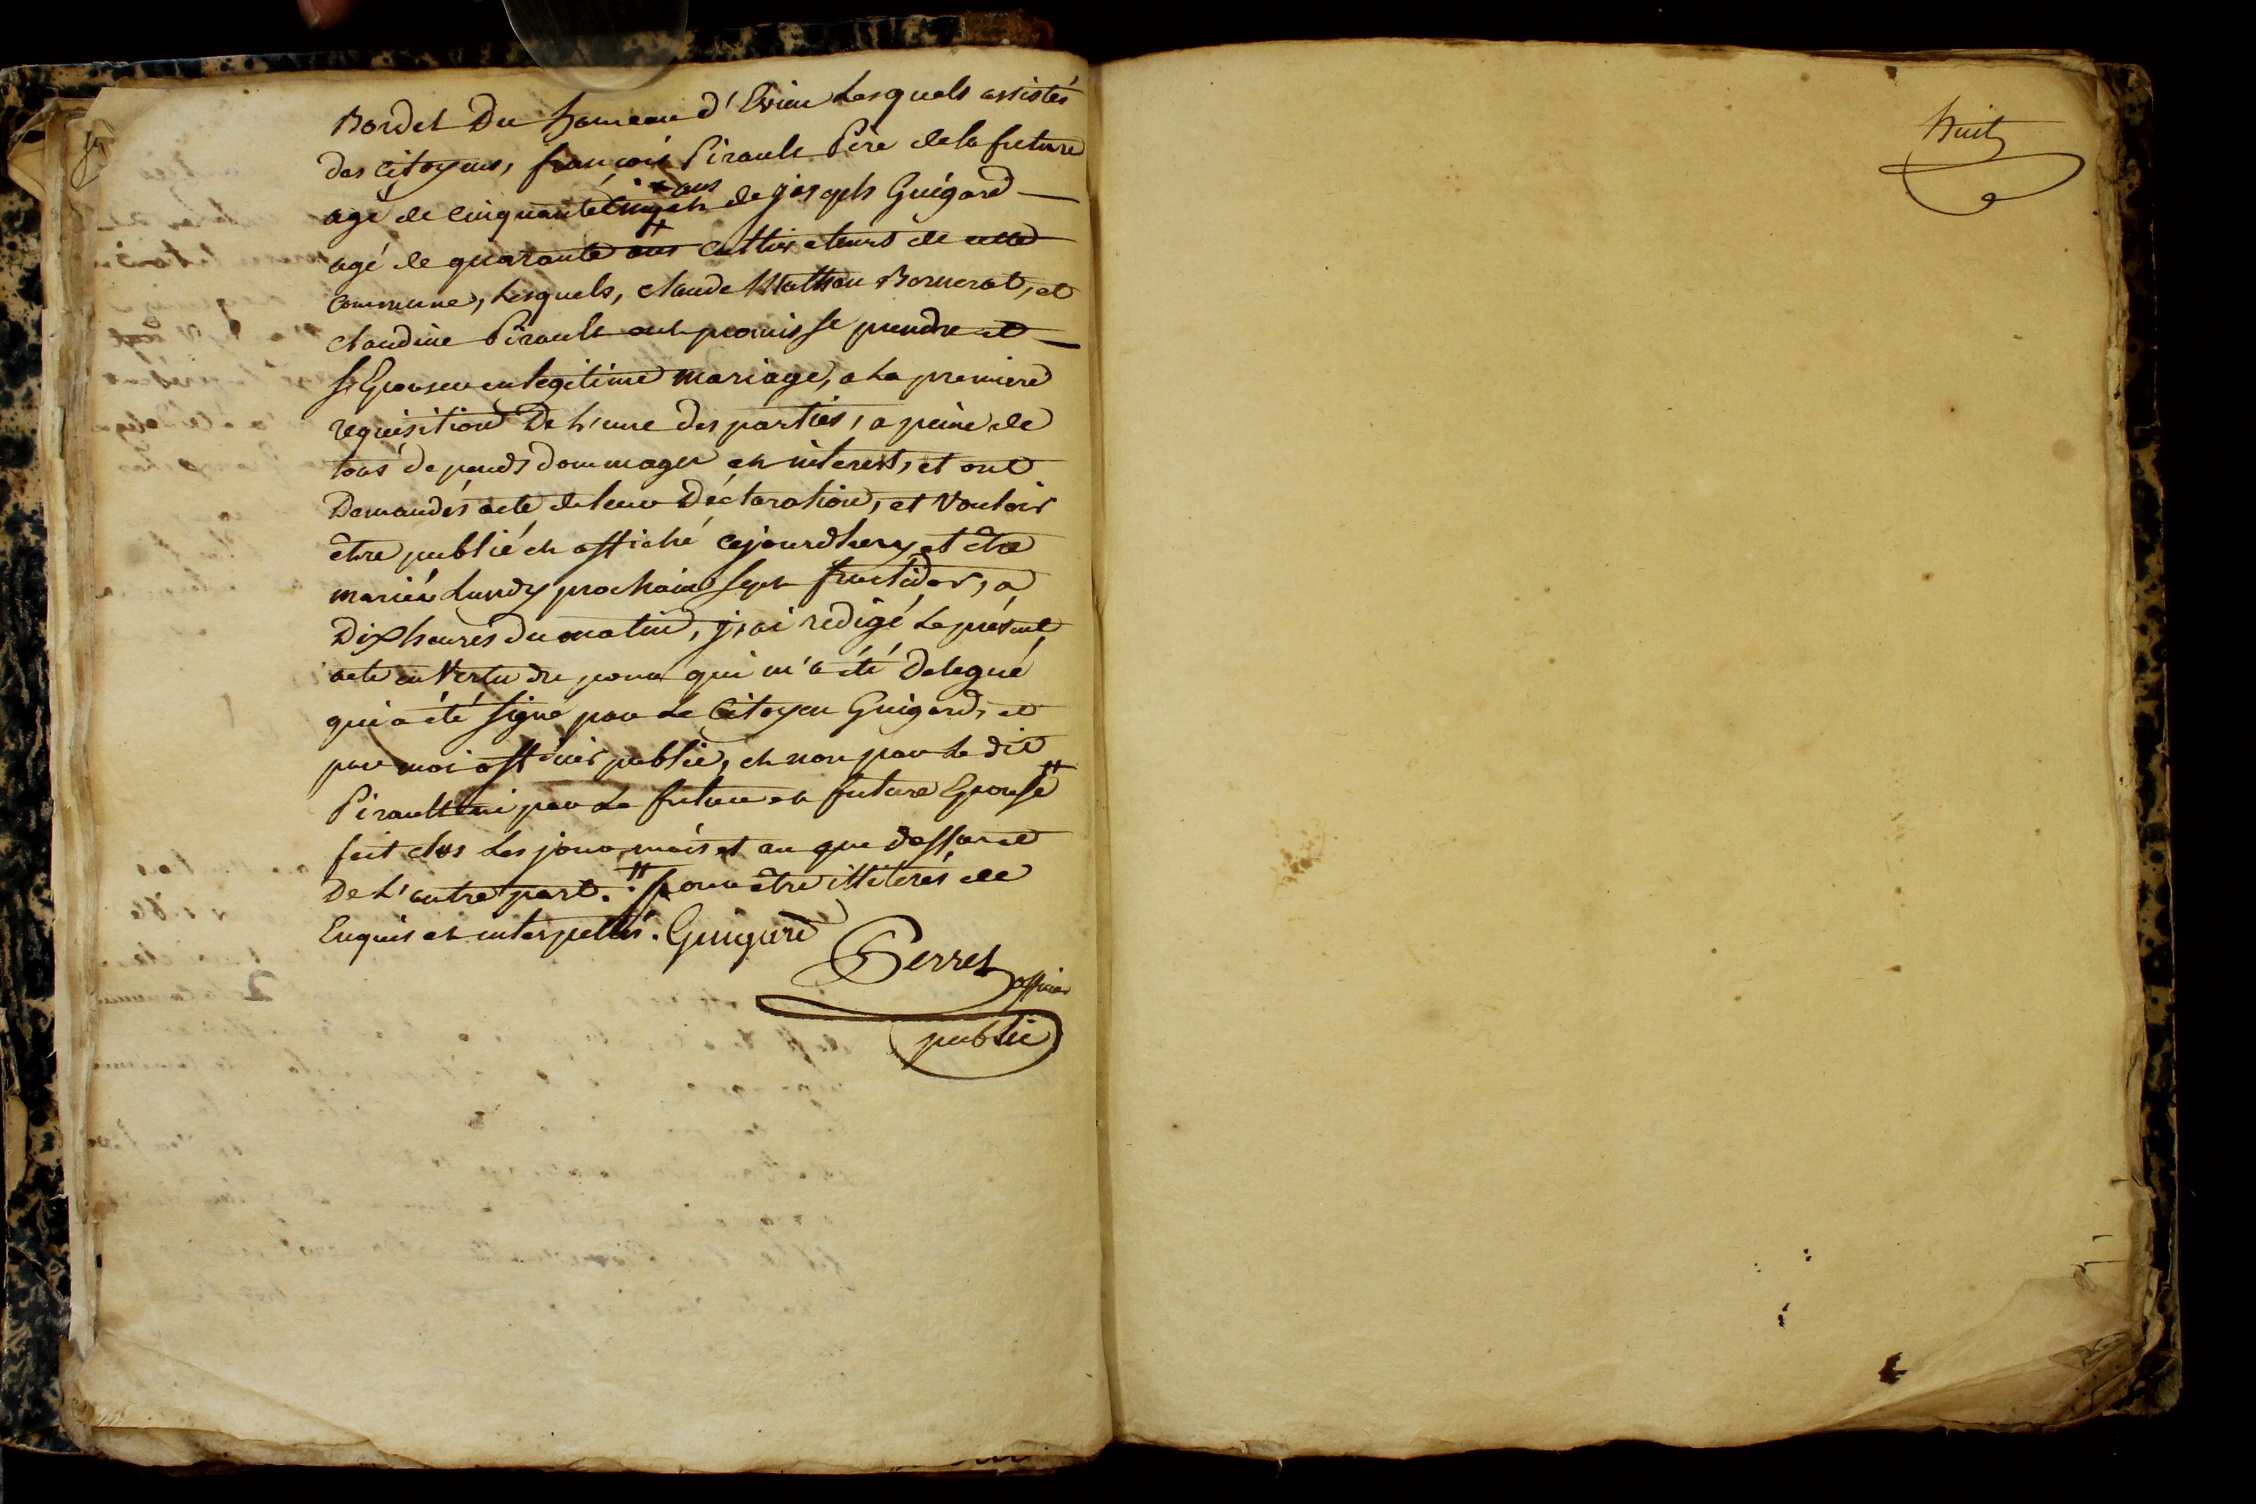 Bordel Du hameau d'Evieu Lesquels assistés
des Citoyens, françois Pirault Père de la future
agé de cinquante cinq ans et de joseph Guigard
agé de quarante ans Cultivateurs de cette
Commune, Lesquels, claude Mathau Bornerat, et
claudine Pirault ont promis se prendre et
se Epouser en legitime mariage, a La premiere
requisition De L'une des parties, a peine de
tous depends dommages et interest, et ont
Demandés acte de leur Déclaration, et vouloir
être publié et affiché cejourdhuy et être
mariés Lundy prochain sept fructidor, a
Dix heures du matin, j'ai redigé Le présent
acte en Vertu du pouvoir qui m'a été delegué
qui a été signé par Le Citoyen Guigard, et
par moi officier public, et non par Le dit
Pirault ni par Le futur et future Epouse #
fait clos Les jour, mois et an que dessus et
De L'autre part. # pour être illiterés de
Enquis et interpellés. Guigard
Perret officier
public
huit